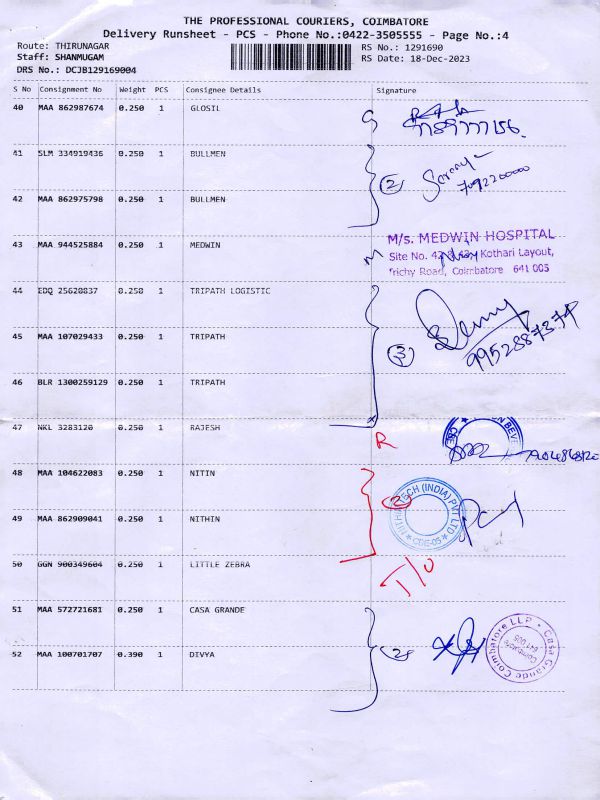 THE PROFESSIONAL COURIERS, COIMBATORE
Delivery Runsheet - PCS - Phone No.:0422-3505555 - Page No.:4
Route: THIRUNAGAR RS No.: 1291690
Staff: SHANMUGAM RS Date: 18-Dec-2023
DRS No.: DCJB129169004
S No Consignment No Weight PCS Consignee Details Signature
40 MAA 862987674 0.250 1 GLOSIL
41 SLM 334919436 0.250 1 BULLMEN
2
42 MAA 862975798 0.250 1 BULLMEN
M/s. MEDWIN HOSPITAL
43 MAA 944525884 0.250 1 MEDWIN
Kothari Layout,
Trichy Road, Coimbatore 641 005
44 EDQ 25620837 0.250 1 TRIPATH LOGISTIC
45 MAA 107029433 0.250 1 TRIPATH
3 9952887374
46 BLR 1300259129 0.250 1 TRIPATH
47 NKL 3283120 0.250 1 RAJESH
R
48 MAA 104622083 0.250 1 NITIN
2
TECH (INDIA) PVT LTD
CBE-05
49 MAA 862909041 0.250 1 NITHIN
50 GGN 900349604 0.250 1 LITTLE ZEBRA
T/O
51 MAA 572721681 0.250 1 CASA GRANDE
Casa Grande Coimbatore LLP
Coimbatore
641 005
52 MAA 100701707 0.390 1 DIVYA
2